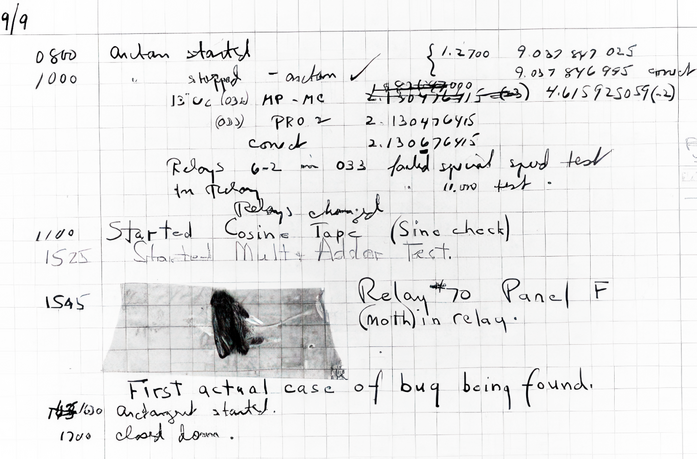 9/9
0800 arctan started { 1.2700 9.037 847 025
1000 " stopped - arctan ✓ 9.037 846 995 correct
13"uc (032) MP-MC 2.130476415 (-3) 4.615925059(-2)
(033) PRO 2 2.130476415
correct 2.130676415
Relays 6-2 in 033 failed special speed test
in Relay " 11.000 test.
Relays changed
1100 Started Cosine Tape (Sine check)
1525 Started Mult+Adder Test.
1545 Relay #70 Panel F
(moth) in relay.
First actual case of bug being found.
1630 arctangent started.
1700 closed down.